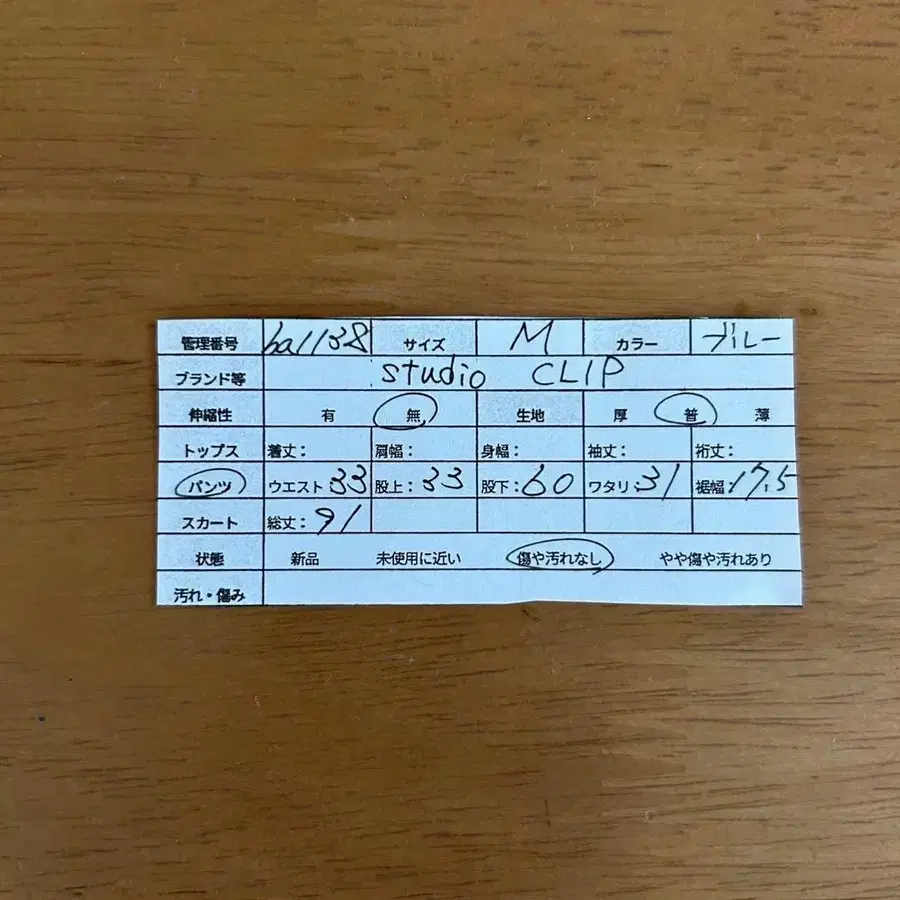 管理番号 ba1138 サイズ M カラー ブルー
ブランド等 studio CLIP
伸縮性 有 無 生地 厚 普 薄
トップス 着丈: 肩幅: 身幅: 袖丈: 裄丈:
パンツ ウエスト:33 股上:33 股下:60 ワタリ:31 裾幅:17.5
スカート 総丈:91
状態 新品 未使用に近い 傷や汚れなし やや傷や汚れあり
汚れ・傷み